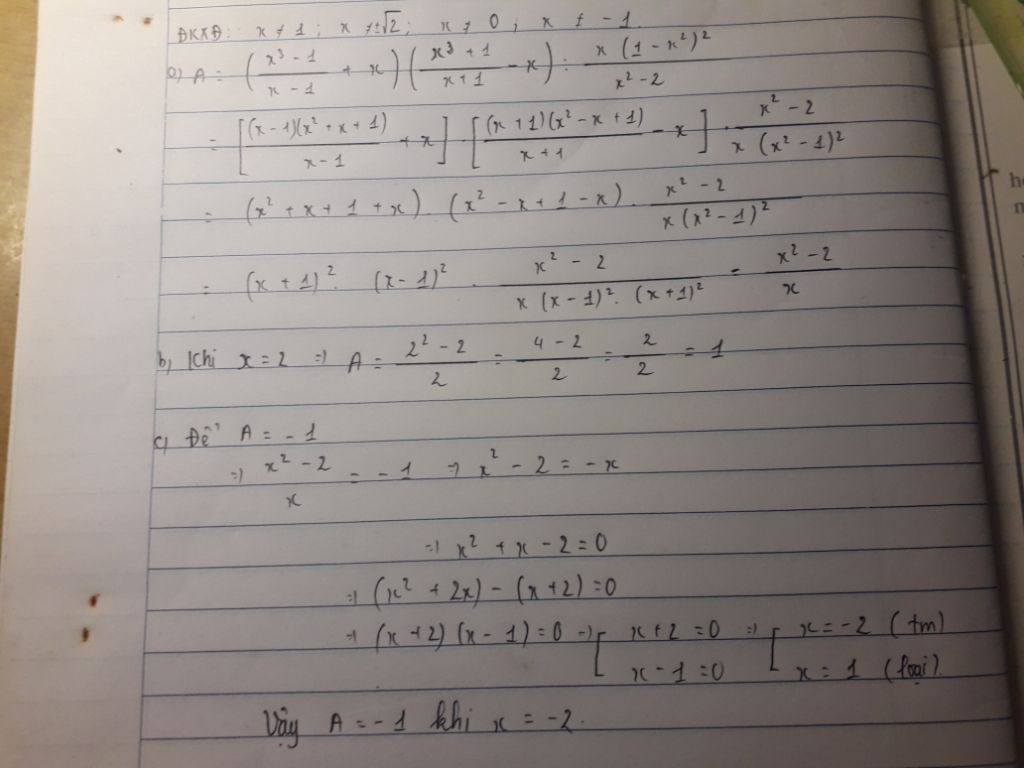 ĐKXĐ: x ≠ 1 ; x ≠ ±√2 ; x ≠ 0 ; x ≠ -1
a) A = ((x³ - 1)/(x - 1) + x) ((x³ + 1)/(x + 1) - x) : (x (1 - x²)²)/(x² - 2)
= [((x - 1)(x² + x + 1))/(x - 1) + x] . [((x + 1)(x² - x + 1))/(x + 1) - x] . (x² - 2)/(x (x² - 1)²)
= (x² + x + 1 + x) . (x² - x + 1 - x) . (x² - 2)/(x (x² - 1)²)
= (x + 1)² . (x - 1)² . (x² - 2)/(x (x - 1)² . (x + 1)²) = (x² - 2)/x
b, Khi x = 2 => A = (2² - 2)/2 = (4 - 2)/2 = 2/2 = 1
c, Để A = -1
=> (x² - 2)/x = -1 => x² - 2 = -x
=> x² + x - 2 = 0
=> (x² + 2x) - (x + 2) = 0
=> (x + 2) (x - 1) = 0 => [ x + 2 = 0 => [ x = -2 (tm)
x - 1 = 0 x = 1 (loại).
Vậy A = -1 khi x = -2.